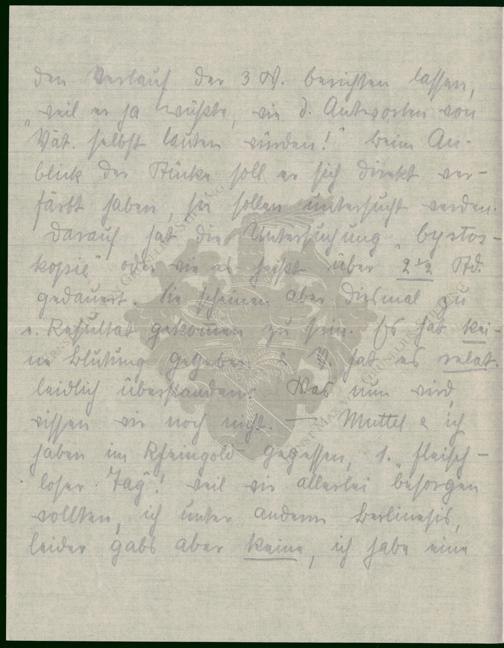 den Verlauf der 3 W. berichten lassen,
„weil er ja wüßte, wie d. Antworten von
Vat. selbst lauten würden!" Beim An-
blick der Stücke soll er sich direkt ver-
färbt haben, sie sollen untersucht werden.
Darauf hat die Untersuchung „Cystos-
kopie" oder wie es heißt über 2½ Std.
gedauert. Sie scheinen aber diesmal zu
e. Resultat gekommen zu sein. Es hat kei-
ne Blutung gegeben & V. hat es relat.
leidlich überstanden. Was nun wird,
wissen wir noch nicht. — Muttel & ich
haben im Rheingold gegessen, 1. „fleisch-
loser Tag"! weil wir allerlei besorgen
wollten, ich unter anderm
leider gabs aber keine, ich habe eine